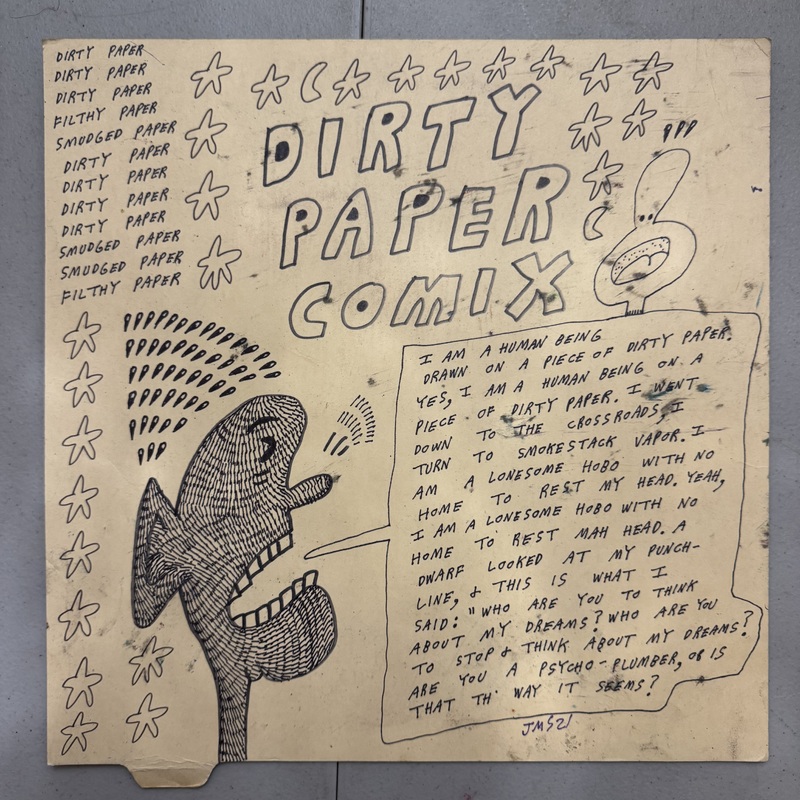 DIRTY PAPER
DIRTY PAPER
DIRTY PAPER
FILTHY PAPER
SMUDGED PAPER
DIRTY PAPER
DIRTY PAPER
DIRTY PAPER
DIRTY PAPER
SMUDGED PAPER
SMUDGED PAPER
FILTHY PAPER
DIRTY
PAPER
COMIX
I AM A HUMAN BEING
DRAWN ON A PIECE OF DIRTY PAPER.
YES, I AM A HUMAN BEING ON A
PIECE OF DIRTY PAPER. I WENT
DOWN TO THE CROSSROADS, I
TURN TO SMOKESTACK VAPOR. I
AM A LONESOME HOBO WITH NO
HOME TO REST MY HEAD. YEAH,
I AM A LONESOME HOBO WITH NO
HOME TO REST MAH HEAD. A
DWARF LOOKED AT MY PUNCH-
LINE, & THIS IS WHAT I
SAID: "WHO ARE YOU TO THINK
ABOUT MY DREAMS? WHO ARE YOU
TO STOP & THINK ABOUT MY DREAMS?
ARE YOU A PSYCHO-PLUMBER, OR IS
THAT TH' WAY IT SEEMS?
JMS21